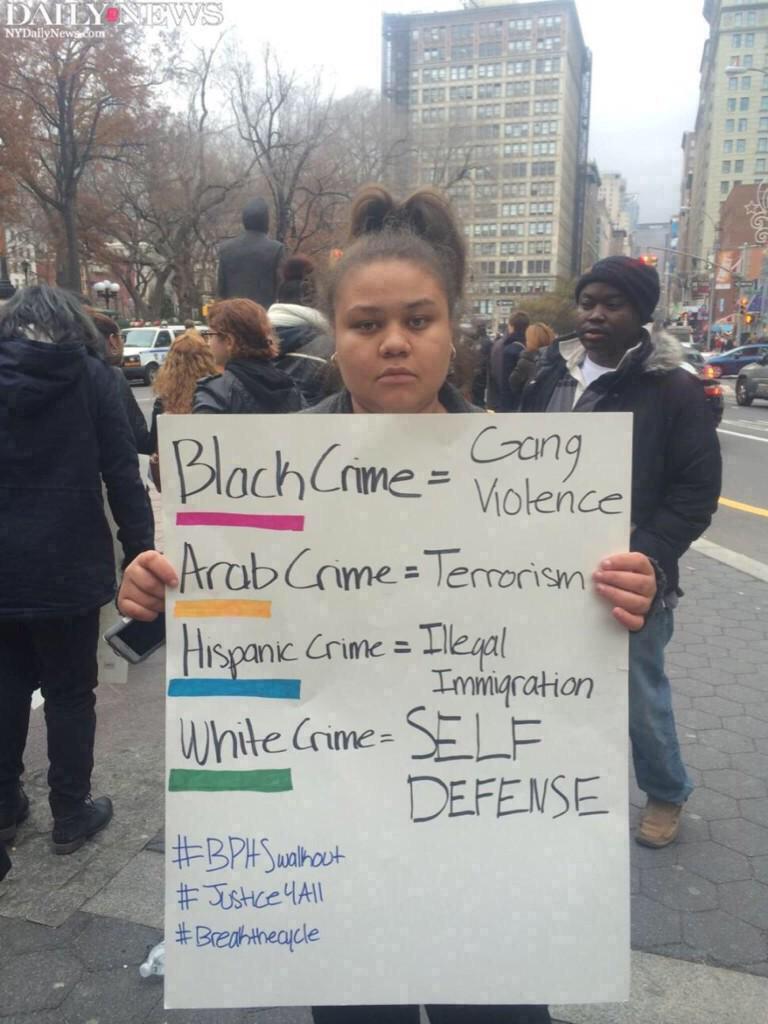 DAILY NEWS
NYDailyNews.com
Black Crime = Gang
Violence
Arab Crime = Terrorism
Hispanic Crime = Illegal
Immigration
White Crime = SELF
DEFENSE
#BPHSwalkout
#Justice4All
#Breakthecycle